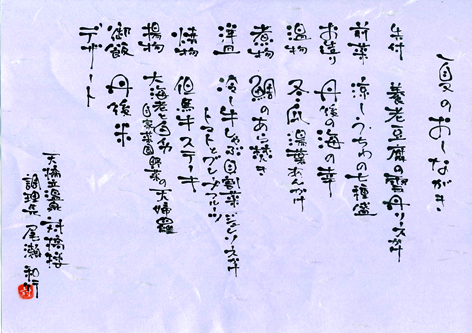 夏のおしながき
先付 養老豆腐の雲丹ソースがけ
前菜 涼しうちわの七種盛
お造り 丹後の海の幸
温物 冬瓜湯葉あんかけ
煮物 鯛のあら炊き
洋皿 冷し牛しゃぶ 割菜 ジュレソースがけ
トマトとグレープフルーツ
焼物 但馬牛ステーキ
揚物 大海老と
自家菜園野菜の天婦羅
御飯 丹後米
デザート
天橋立温泉 対橋楼
調理長 尾瀬 和行